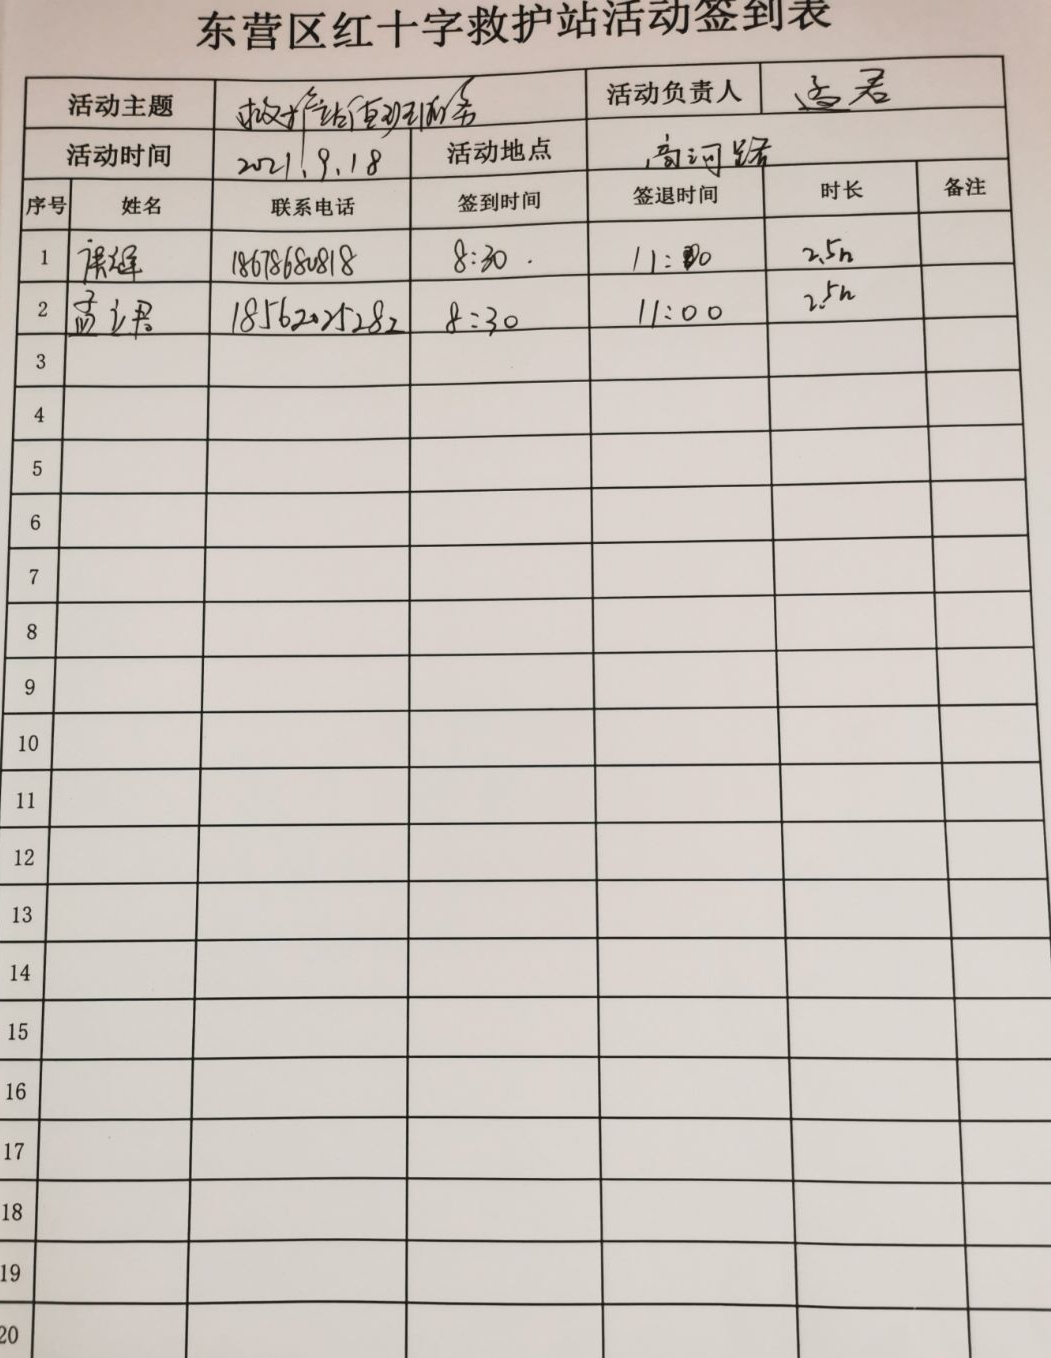 东营区红十字救护站活动签到表
活动主题 救护站值班服务 活动负责人 孟君
活动时间 2021.9.18 活动地点 河路
序号 姓名 联系电话 签到时间 签退时间 时长 备注
1 18678680818 8:30 11:00 2.5h
2 孟 君 18562025282 8:30 11:00 2.5h
3
4
5
6
7
8
9
10
11
12
13
14
15
16
17
18
19
20